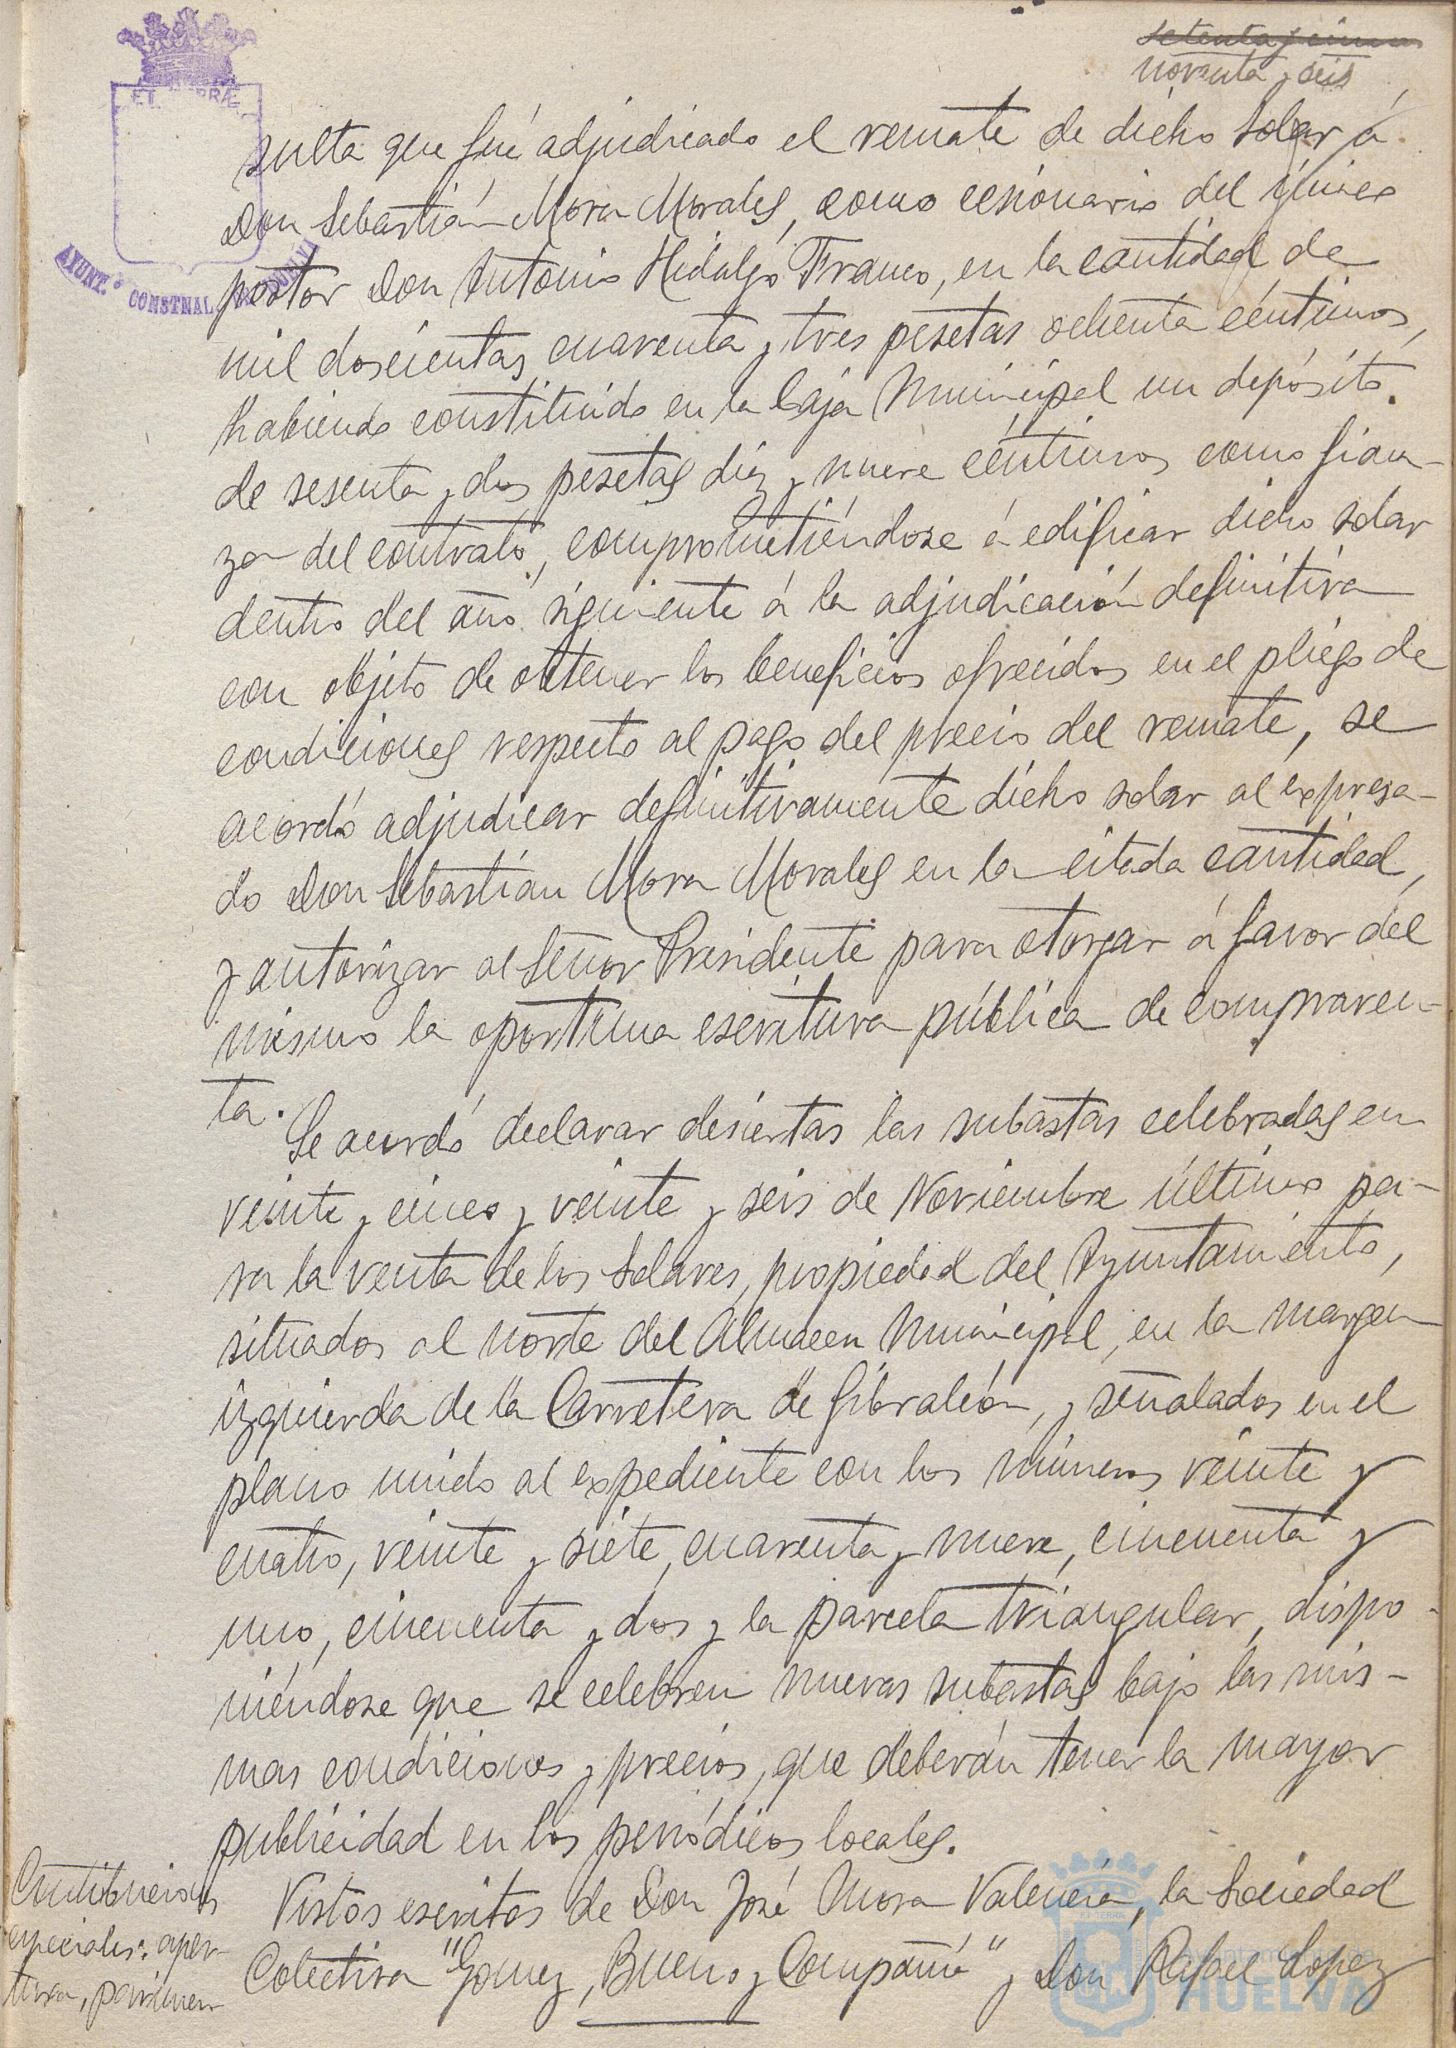 noventa y seis
sulta que fué adjudicado el remate de dicho solar á
Don Sebastián Mora Morales, como cesionario del único
postor Don Antonio Hidalgo Franco, en la cantidad de
mil doscientas cuarenta y tres pesetas ochenta céntimos,
habiendo constituido en la Caja Municipal un depósito
de sesenta y dos pesetas diez y nueve céntimos como fian-
za del contrato, comprometiéndose á edificar dicho solar
dentro del año siguiente á la adjudicación definitiva
con objeto de obtener los beneficios ofrecidos en el pliego de
condiciones respecto al pago del precio del remate, se
acordó adjudicar definitivamente dicho solar al expresa-
do Don Sebastián Mora Morales en la citada cantidad,
y autorizar al Señor Presidente para otorgar á favor del
mismo la oportuna escritura pública de compraven-
ta.
Se acordó declarar desiertas las subastas celebradas en
veinte y cinco y veinte y seis de Noviembre último pa-
ra la venta de los solares, propiedad del Ayuntamiento,
situados al norte del Almacen Municipal, en la margen
izquierda de la Carretera de Gibraleón, y señalados en el
plano unido al expediente con los números veinte y
cuatro, veinte y siete, cuarenta y nueve, cincuenta y
uno, cincuenta y dos y la parcela triangular, dispo-
niéndose que se celebren nuevas subastas bajo las mis-
mas condiciones y precios, que deberán tener la mayor
publicidad en los periódicos locales.
Contribuciones
especiales: aper-
tura, pavimen
Vistos escritos de Don José Mora Valencia, la Sociedad
Colectiva "Gomez, Bueno y Compañía" y Don Rafael Lopez
AYUNT.º CONSTNAL
Ayuntamiento de
HUELVA